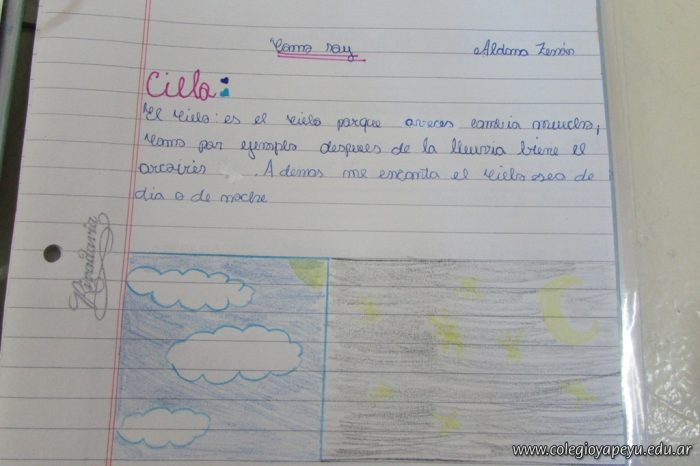 Como soy
Aldana
Cielo:
El cielo: es el cielo porque aveces cambia muucho,
como por ejemplo despues de la lluuvia biene el
arcoiris . Ademas me encanta el cielo osea de
dia o de noche
Rivadavia
www.colegioyapeyu.edu.ar